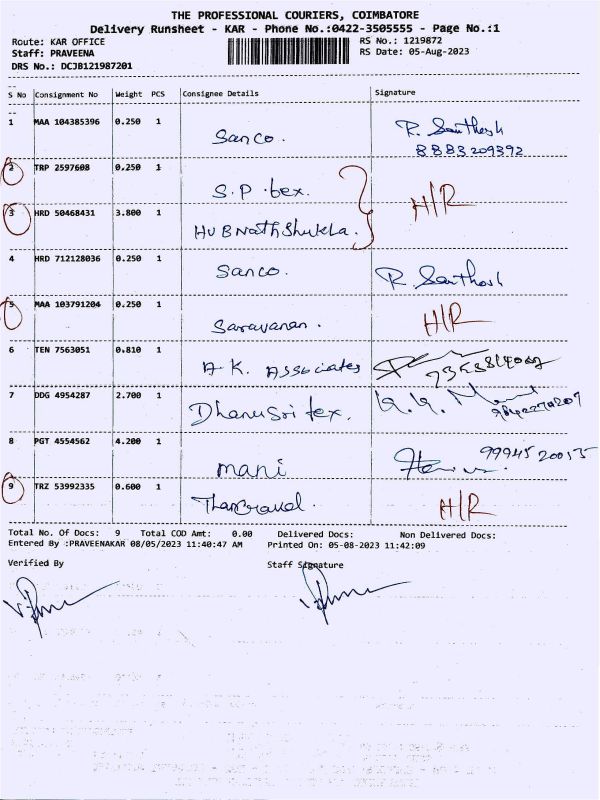 THE PROFESSIONAL COURIERS, COIMBATORE
Delivery Runsheet - KAR - Phone No.:0422-3505555 - Page No.:1
Route: KAR OFFICE
RS No.: 1219872
Staff: PRAVEENA
RS Date: 05-Aug-2023
DRS No.: DCJB121987201
S No Consignment No Weight PCS Consignee Details Signature
1 MAA 104385396 0.250 1 Sanco. R. Santhosh
8883209392
2 TRP 2597608 0.250 1 S.P. tex.
H/R
3 HRD 50468431 3.800 1 HUBNathShukla.
4 HRD 712128036 0.250 1 Sanco. R. Santhosh
5 MAA 103791204 0.250 1 Saravanan. H/R
6 TEN 7563051 0.810 1 A.K. Associates
7 DDG 4954287 2.700 1 Dhanusri tex.
8 PGT 4554562 4.200 1 mani
9 TRZ 53992335 0.600 1 H/R
Total No. Of Docs: 9 Total COD Amt: 0.00 Delivered Docs: Non Delivered Docs:
Entered By :PRAVEENAKAR 08/05/2023 11:40:47 AM Printed On: 05-08-2023 11:42:09
Verified By Staff Signature